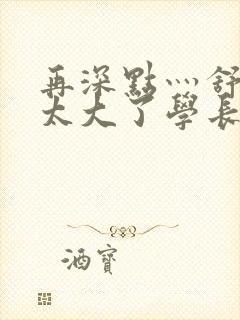 再深點灬舒
太大了學長
酒寶